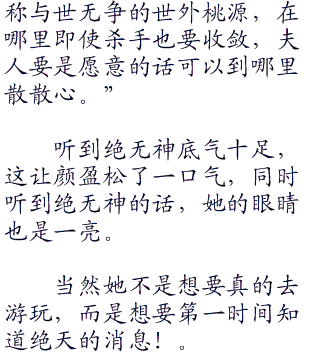 称与世无争的世外桃源，在
哪里即使杀手也要收敛，夫
人要是愿意的话可以到哪里
散散心。”
听到绝无神底气十足，
这让颜盈松了一口气，同时
听到绝无神的话，她的眼睛
也是一亮。
当然她不是想要真的去
游玩，而是想要第一时间知
道绝天的消息！。